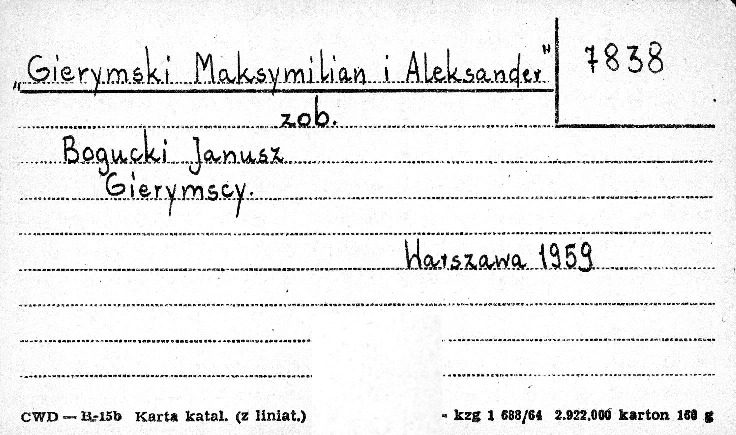 „Gierymski Maksymilian i Aleksander"
7838
zob.
Bogucki Janusz
Gierymscy.
Warszawa 1959
CWD — B-15b Karta katal. (z liniat.)
- kzg 1 688/64 2.922,000 karton 160 g